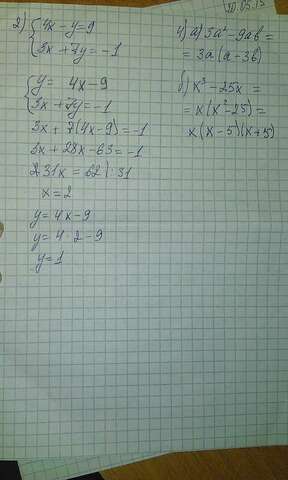 2) { 4x - y = 9
3x + 7y = -1
{ y = 4x - 9
3x + 7y = -1
3x + 7(4x - 9) = -1
3x + 28x - 63 = -1
31x = 62 | 31
x = 2
y = 4x - 9
y = 4 · 2 - 9
y = 1
4) а) 3a² - 9ab =
= 3a(a - 3b)
б) x³ - 25x =
= x(x² - 25) =
x(x - 5)(x + 5)